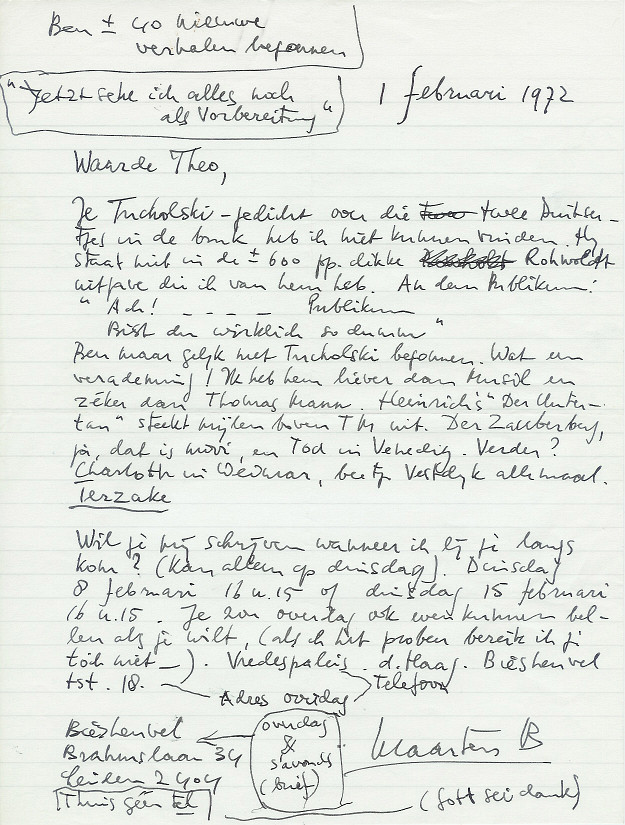 Ben ± 40 nieuwe
verhalen begonnen
"Jetzt sehe ich alles noch
als Vorbereitung"
1 februari 1972
Waarde Theo,
Je Tucholski-gedicht over die twee Duitser-
tjes in de bank heb ik niet kunnen vinden. Hy
staat niet in de ± 600 pp. dikke Rohwoldt
uitgave die ik van hem heb. An dem Publikum:
" Ach! _ _ _ _ Publikum
Bist du wirklich so dumm"
Ben maar gelyk met Tucholski begonnen. Wat een
verademing! Ik heb hem liever dan Musil en
zéker dan Thomas Mann. Heinrich's "Der Unter-
tan" steekt mijlen boven TM uit. Der Zauberberg,
jà, dat is mooi, en Tod in Venedig. Verder?
Charloth in Weimar, beetje Vestdyk allemaal.
Terzake
Wil je mij schrijven wanneer ik bij je langs
kom? (Kan alleen op dinsdag). Dinsdag
8 februari 16 u. 15 of dinsdag 15 februari
16 u. 15. Je zou overdag ook even kunnen bel-
len als je wilt, (als ik het probeer bereik ik je
tòch niet _). Vredespaleis. d. Haag. Biesheuvel
tst. 18.
Adres overdag
Telefoon
Biesheuvel
Brahmslaan 34
Leiden 2404
Thuis géén tel
overdag
&
s'avonds
(brief)
Maarten B
(Gott sei dank)